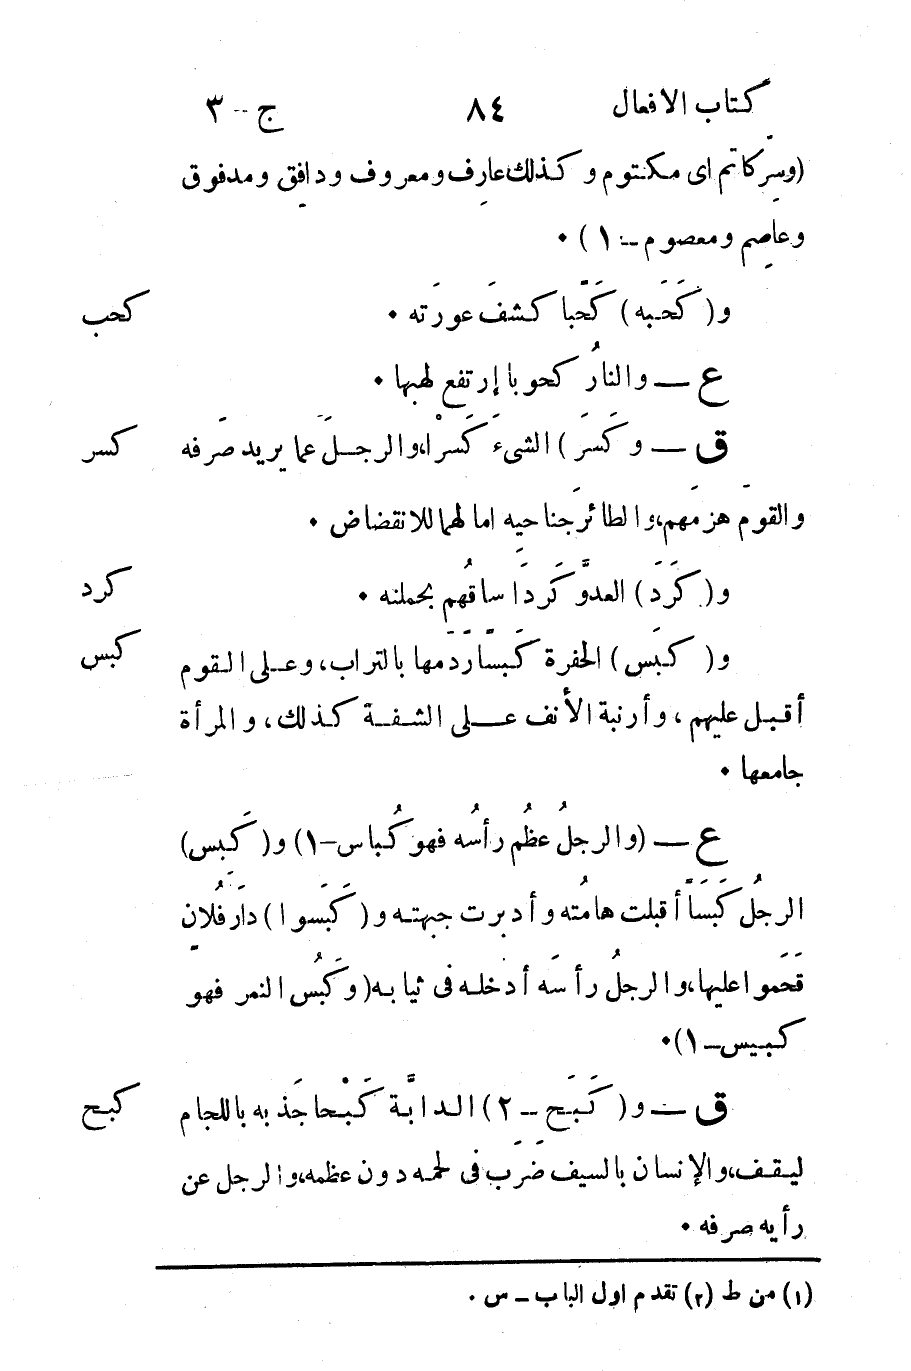 كتاب الافعال ٨٤ ج -- ٣
(وسِرّ كاتم اى مكتوم وكذلك عارِف ومعروف ودافِق ومدفوق
وعاصِم ومعصوم -: ١) .
و(كَحَبه) كَحْبًا كشفَ عورَته . كحب
ع — والنارُ كحوبا إرتفع لهبها .
ق — وكَسرَ) الشىءَ كَسْرًا، والرجلَ عما يريد صَرفه كسر
والقومَ هزمَهم، والطائرُ جناحيِه امالهما للانقضاض .
و(كَرَدَ) العدوَّ كَردًا ساقُهم بحملته . كرد
و(كبَس) الحفرة كَبسًا رَدَمَها بالتراب، وعلى القوم كبس
أقبل عليهم، وأرنبة الأنف على الشفة كذلك، والمرأة
جامعها .
ع — (والرجلُ عظُم رأسُه فهو كُباس-١) و(كَبِس)
الرجُل كَبَسًا أقبلت هامُته وأدبرت جبهته و(كَبَسوا) دارَ فُلانٍ
قحَموا عليها، والرجلُ رأسَه أدخله فى ثيابه (وكَبُس النمر فهو
كبيس-١) .
ق — و(كَبَح - ٢) الدابَّة كَبْحا جَذبه باللجام كبح
ليقف، والإنسان بالسيف ضَرَب فى لحمه دون عظمه، والرجل عن
رأيه صرفه .
(١) من ط (٢) تقدم اول الباب - س .